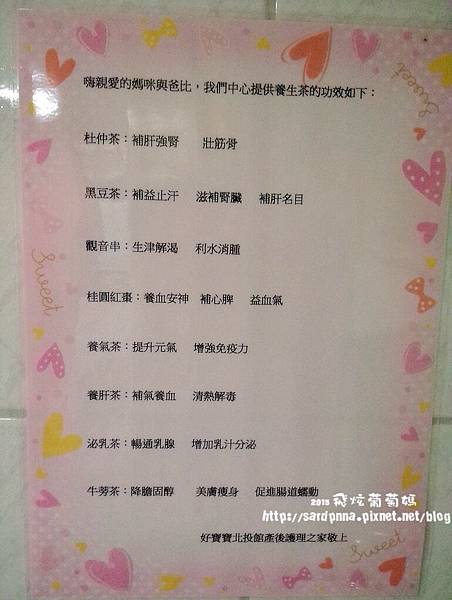 嗨親愛的媽咪與爸比，我們中心提供養生茶的功效如下：
Sweet
杜仲茶：補肝強腎 壯筋骨
黑豆茶：補益止汗 滋補腎臟 補肝名目
觀音串：生津解渴 利水消腫
Sweet
桂圓紅棗：養血安神 補心脾 益血氣
養氣茶：提升元氣 增強免疫力
養肝茶：補氣養血 清熱解毒
泌乳茶：暢通乳腺 增加乳汁分泌
牛蒡茶：降膽固醇 美膚瘦身 促進腸道蠕動
2015 飛炫葡萄媽
http://sardpnna.pixnet.net/blog
好寶寶北投館產後護理之家敬上
Sweet